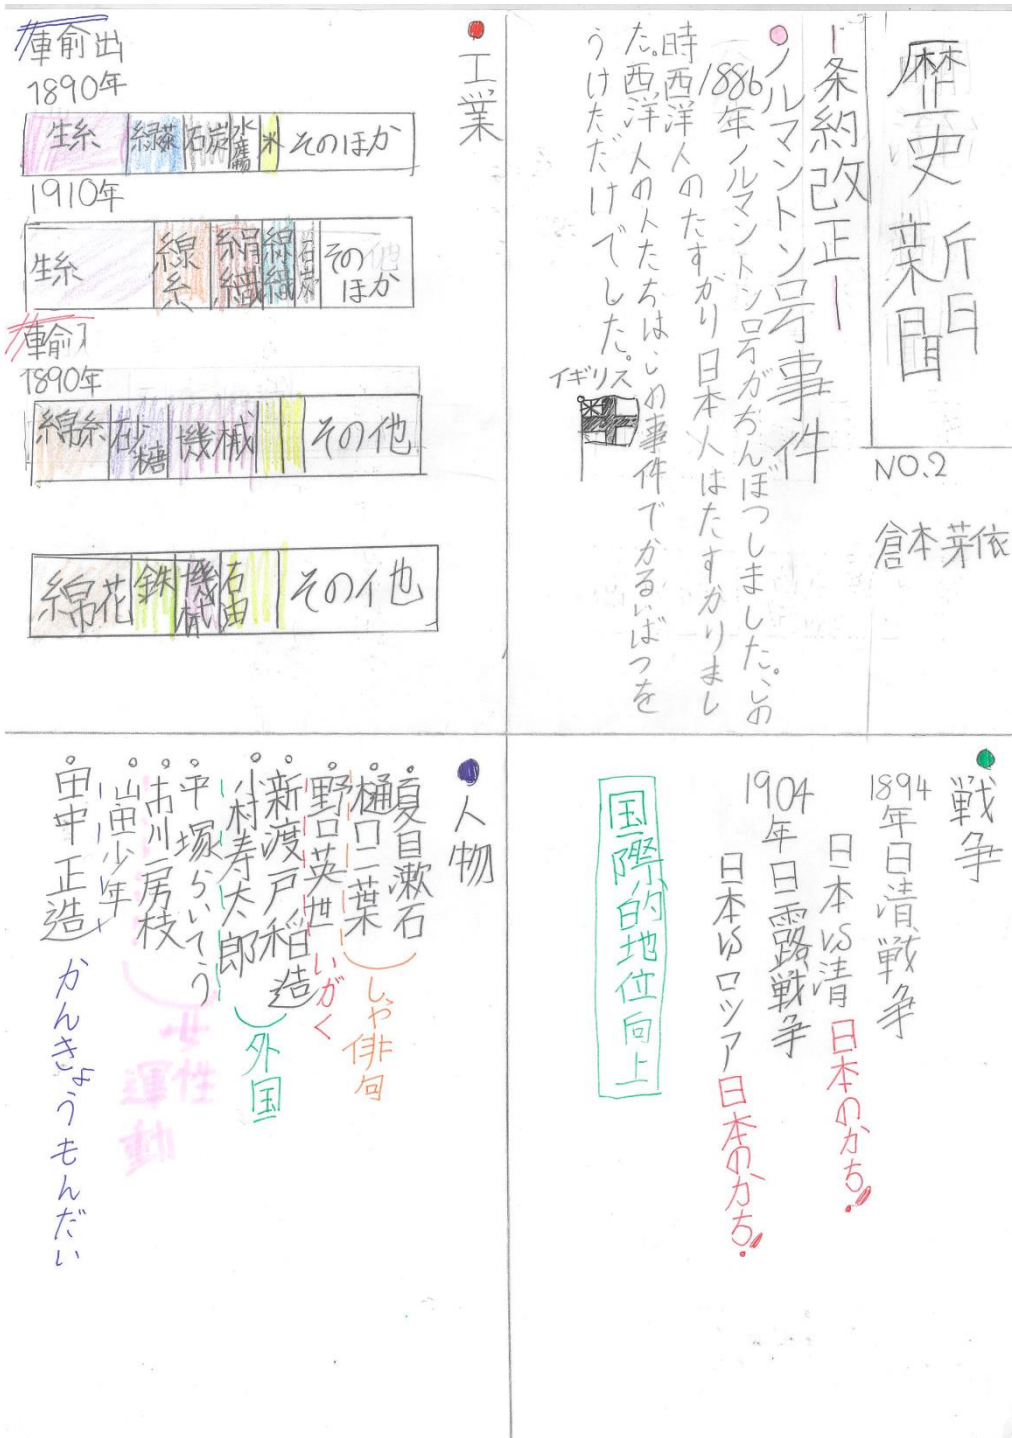 歴史新聞
NO.2
倉本芽依
ー条約改正ー
ノルマントン号事件
1886年ノルマントン号がちんぼつしました。この
時西洋人のたすかり日本人はたすかりまし
た。西洋人の人たちはこの事件でかるいばつを
うけただけでした。
イギリス
工業
輸出
1890年
生糸 緑茶 石炭 水産物 米 そのほか
1910年
生糸 綿糸 絹織 綿織 石炭 そのほか
輸入
1890年
綿糸 砂糖 機械 その他
綿花 鉄 機械 石油 その他
戦争
1894年日清戦争
日本vs清 日本のかち!
1904年日露戦争
日本vsロシア 日本のかち!
国際的地位向上
人物
夏目漱石
樋口一葉
しゃ俳句
野口英世 いがく
新渡戸稲造
小村寿太郎
外国
平塚らいてう
市川房枝
山田少年
女性運動
田中正造 かんきょうもんだい